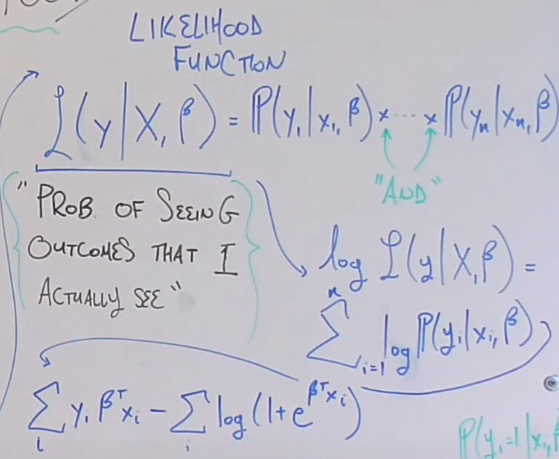 LIKELIHOOD
FUNCTION
ℒ(y|X, β) = ℙ(y₁|x₁, β) × ··· × ℙ(yₙ|xₙ, β)
"AND"
"PROB OF SEEING
OUTCOMES THAT I
ACTUALLY SEE"
log ℒ(y|X, β) =
∑ᵢ₌₁ⁿ log ℙ(yᵢ|xᵢ, β)
∑ᵢ yᵢ βᵀxᵢ − ∑ᵢ log(1+e^(βᵀxᵢ))
ℙ(yᵢ=1|xᵢ, β